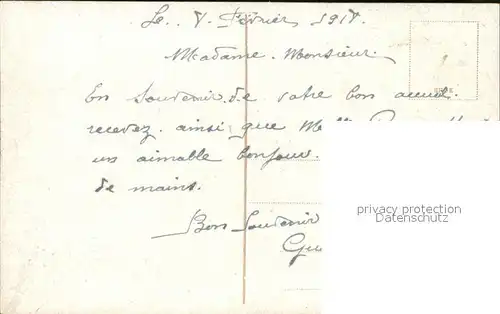 Le Février 191
Madame. Monsieur.
En Souvenir de votre bon accueil.
recevez. ainsi que
un aimable bonjour.
de mains.
Bon Souvenir
privacy protection
Datenschutz